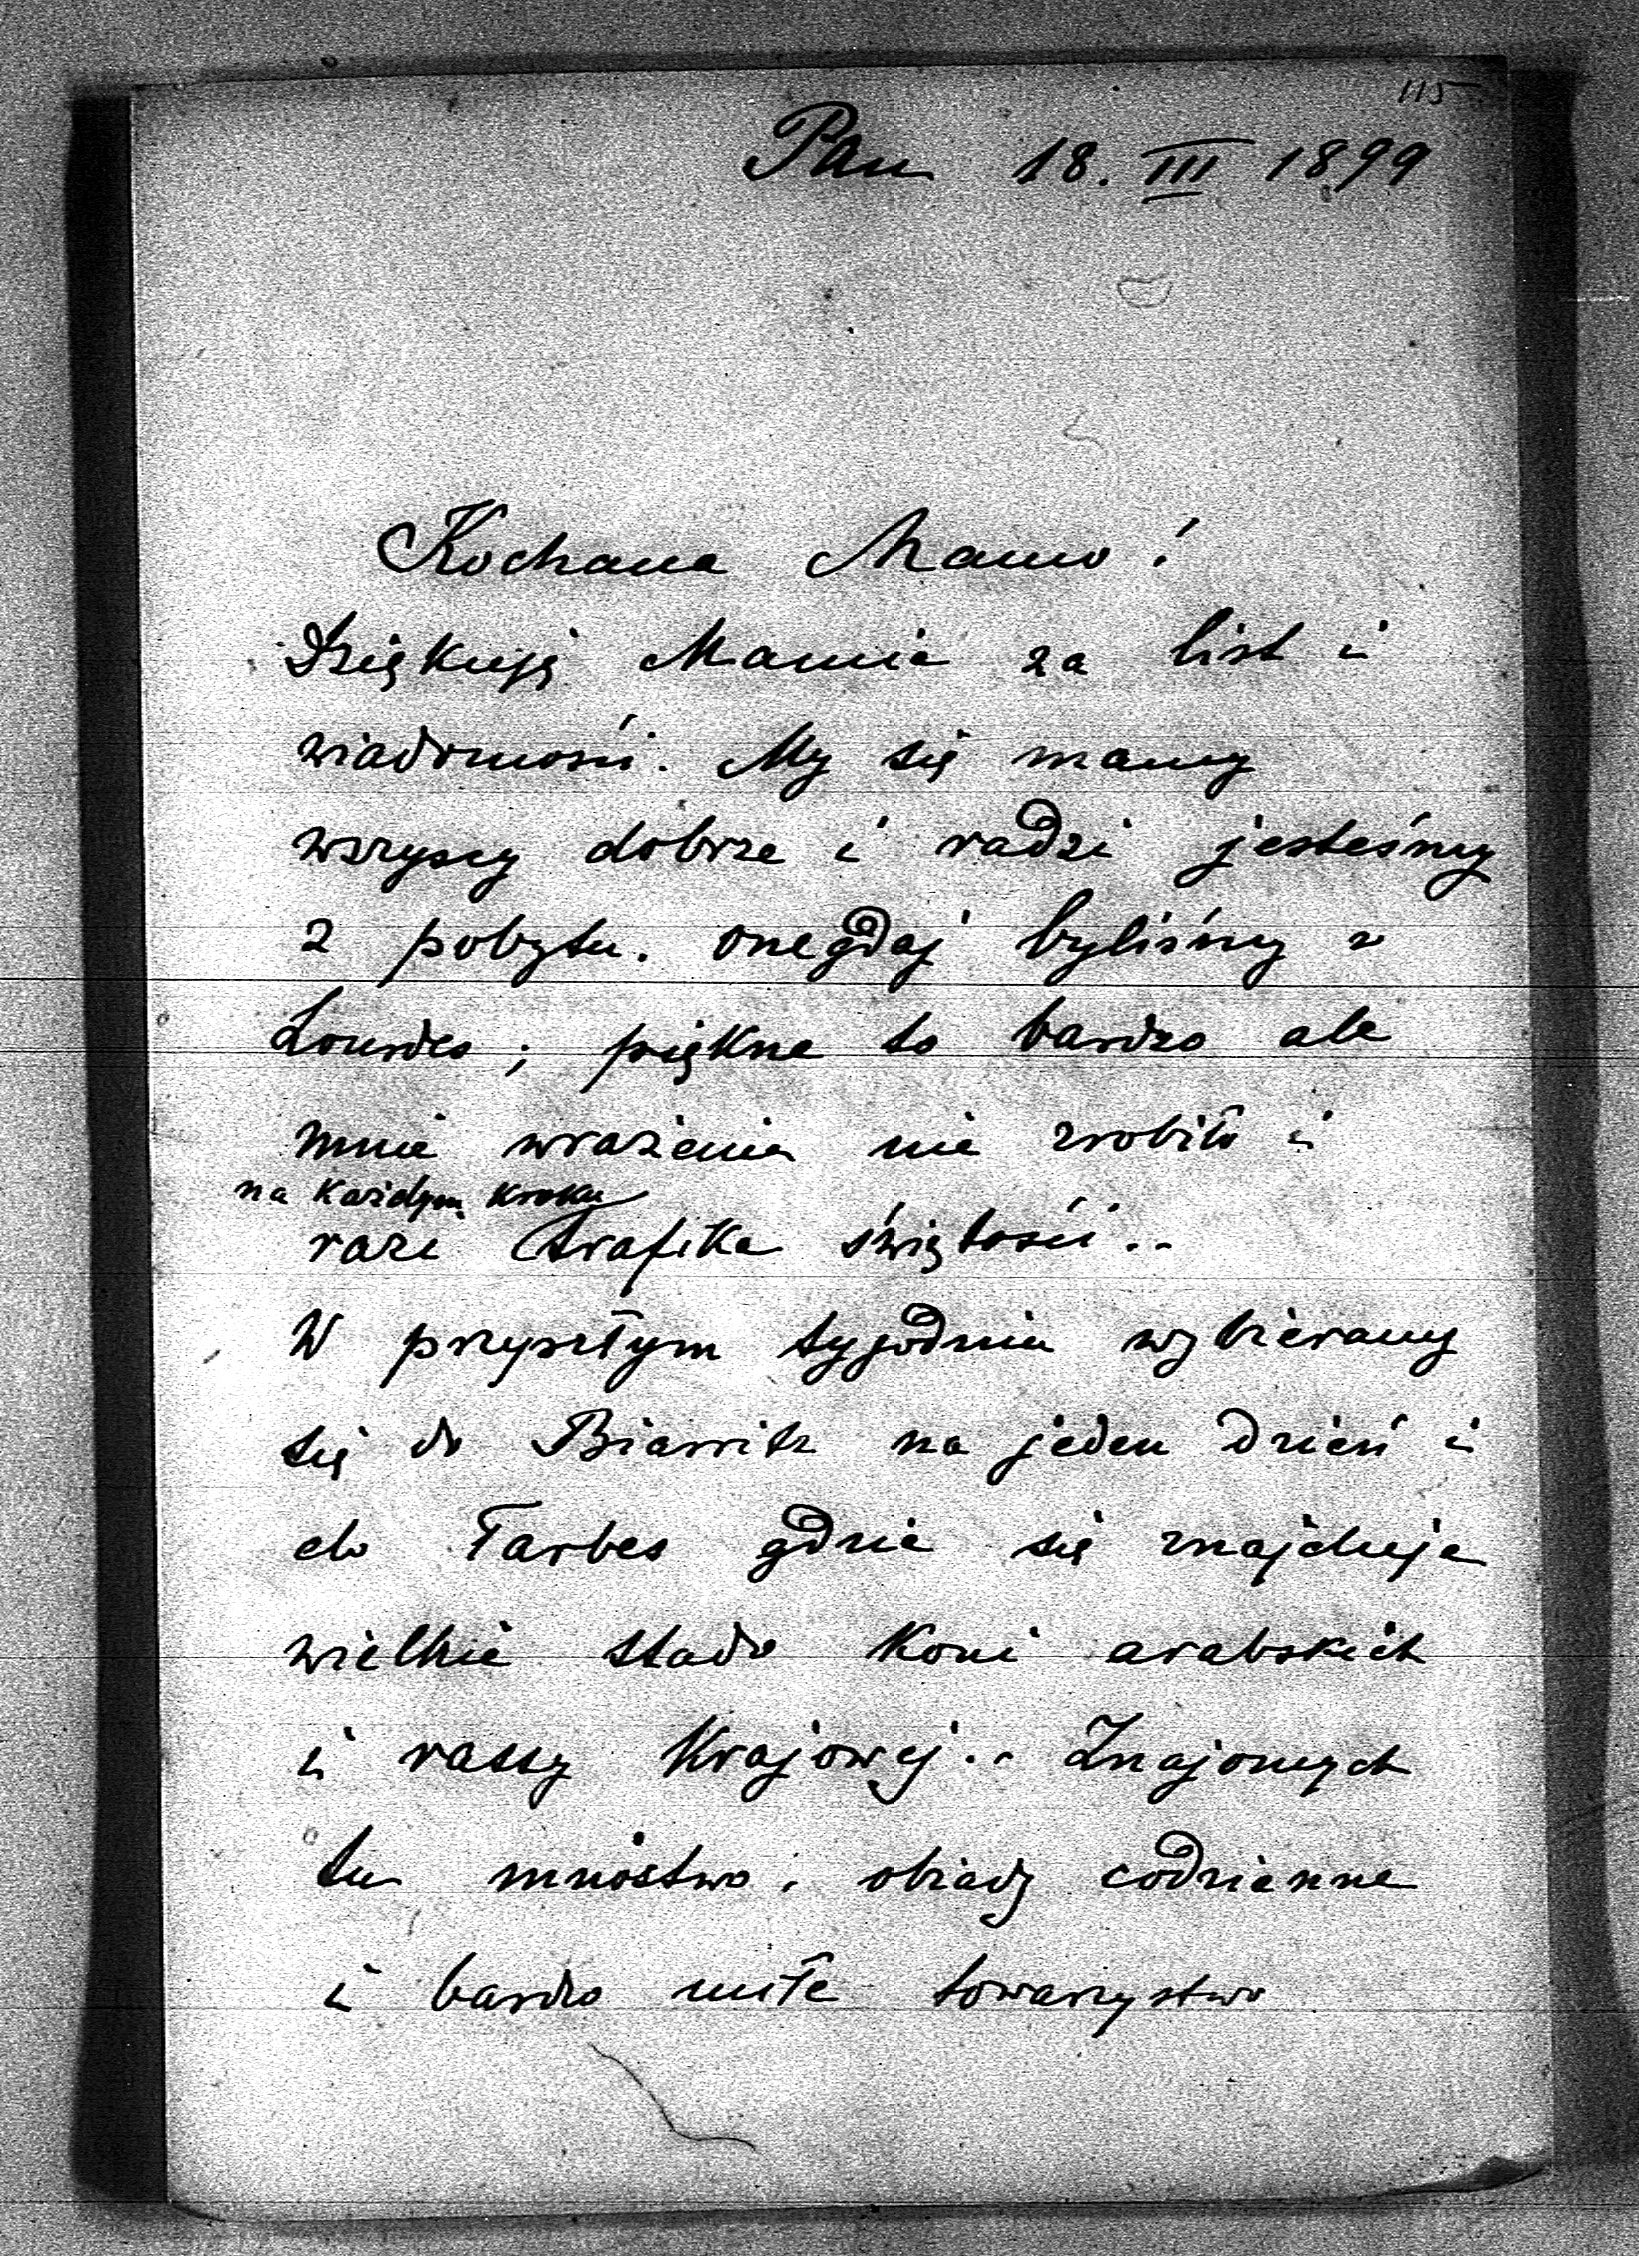 115
Pau 18. III 1899
Kochana Mamo!
Dziękuję Mamie za list i
wiadomości. My się mamy
wszyscy dobrze i radzi jesteśmy
z pobytu. onegdaj byliśmy w
Lourdes; piękne to bardzo ale
mnie wrażenia nie zrobiło i
na każdym kroku
razi trafika świętości..
W przyszłym tygodniu wybieramy
się do Biarritz na jeden dzień i
do Tarbes gdzie się znajduje
wielkie stado koni arabskich
i rassy Krajowej.. Znajomych
tu mnóstwo, obiady codzienne
i bardzo miłe towarzystwo